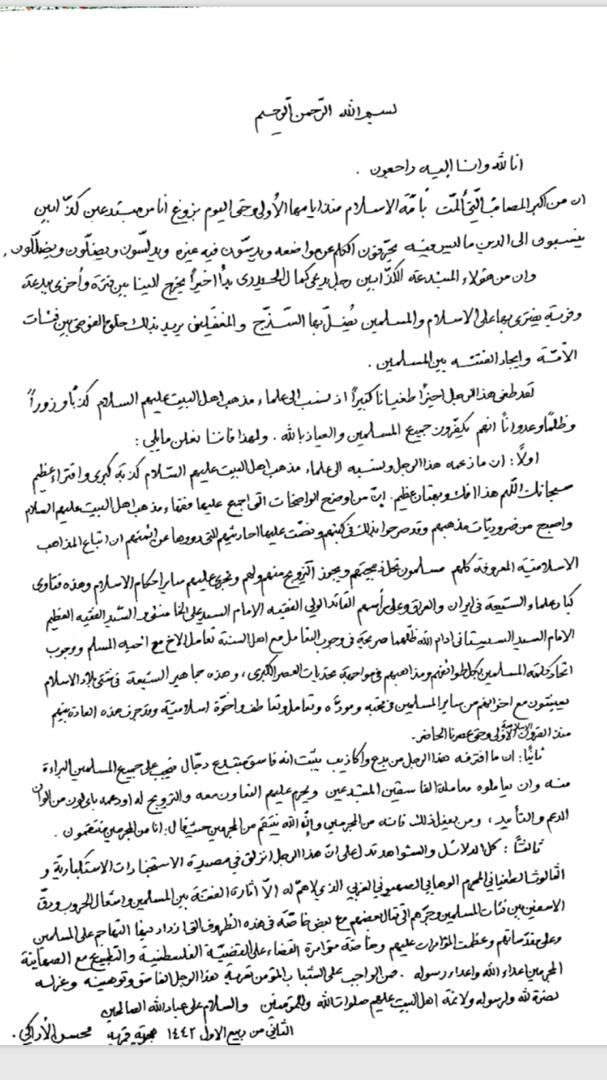 بسم الله الرّحمن الرّحيم
انا لله وانا اليه راجعون .
ان من اكبر المصائب التّي ألمّت بأمّة الاسلام منذ ايامها الأولى وحتى اليوم بزوغ أناس مبتدعين كذّابين
ينسبون الى الدين ما ليس فيه يحرّفون الكلم عن مواضعه ويدسّون فيه غيره ويدلّسون ويضلّون ويضلّلون .
وان من هؤلاء المبتدعة الكذّابين رجل يدعى كمال الحيدري بدأ اخيراً يخرج الينا بين فترة وأخرى ببدعة
وفرية يفتري بها على الاسلام والمسلمين يُضلّ بها السّذّج والمغفّلين يريد بذلك خلق الفوضى بين فئات
الأمّة وايجاد الفتنة بين المسلمين .
لقد طغى هذا الرجل اخيراً طغياناً كبيراً اذ نسب الى علماء مذهب اهل البيت عليهم السلام كذباً وزوراً
وظلماً وعدواناً انهم يكفّرون جميع المسلمين والعياذ بالله . ولهذا فاننا نعلن مايلي :
اولاً : ان ما زعمه هذا الرجل ونسبه الى علماء مذهب اهل البيت عليهم السّلام كذبة كبرى وافتراء عظيم
سبحانك اللّهم هذا افك وبهتان عظيم . إنّ من اوضح الواضحات التي اجمع عليها فقهاء مذهب اهل البيت عليهم السلام
واصبح من ضروريات مذهبهم وقد صرحوا بذلك في كتبهم ونصّت عليها احاديثهم التي رووها عن ائمتهم ان اتباع المذاهب
الاسلاميّة المعروفة كلهم مسلمون تحلّ ذبيحتهم ويجوز التزويج منهم ولهم وتجري عليهم سائر احكام الاسلام وهذه فتاوى
كبار علماء الشيعة في ايران والعراق وعلى رأسهم القائد الولي الفقيه الامام السيد علي الخامنئي والسّيد الفقيه العظيم
الامام السيد السيستاني ادام الله ظلّهما صريحة في وجوب التعامل مع اهل السنة تعامل الاخ مع اخيه المسلم ووجوب
اتحاد كلمة المسلمين بكل طوائفهم ومذاهبهم في مواجهة تحديات العصر الكبرى ، وهذه جماهير الشيعة في شتى بلاد الاسلام
يعيشون مع اخوانهم من سائر المسلمين في محبّة ومودّة وتعامل وتعاطف واخوّة اسلاميّة وقد جرت هذه العادة بينهم
منذ القرون الاسلامية الأولى وحتى عصرنا الحاضر.
ثانياً : ان ما افترفه هذا الرجل من بدع واكاذيب يثبت انه فاسق مبتدع دجّال فيجب على جميع المسلمين البراءة
منه وان يعاملوه معاملة الفاسقين المبتدعين ويحرم عليهم التعاون معه والترويج له او دعمه باي لون من الوان
الدعم والتأييد ، ومن يفعل ذلك فانه من المجرمين وإنّ الله ينتقم من المجرمين حيث قال : انا من المجرمين منتقمون .
ثالثاً : كل الدلائل والشواهد تدل على انّ هذا الرجل انزلق في مصيدة الاستخبارات الاستكبارية و
الثالوث الطغياني المجرم الوهابي الصهيوني الغربي الذي لا همّ له الاّ اثارة الفتنة بين المسلمين واشعال الحروب ودقّ
الاسفين بين فئات المسلمين وجرّهم الى قتال بعضهم مع بعض خاصّة في هذه الظروف التي ازداد فيها التهاجم على المسلمين
وعلى مقدساتهم وعظمت المؤامرات عليهم وخاصّة مؤامرة القضاء على القضيّة الفلسطينية والتطبيع مع الصهاينة
المجرمين اعداء الله واعداء رسوله . فمن الواجب على الشباب المؤمن تعرية هذا الرجل الفاسق وتوهينه وعزله
نصرة لله ولرسوله ولائمة اهل البيت عليهم صلوات الله والسلام على عباد الله الصالحين
الثاني من ربيع الاول ١٤٤٢ هجرية قمرية محسن الأراكي .